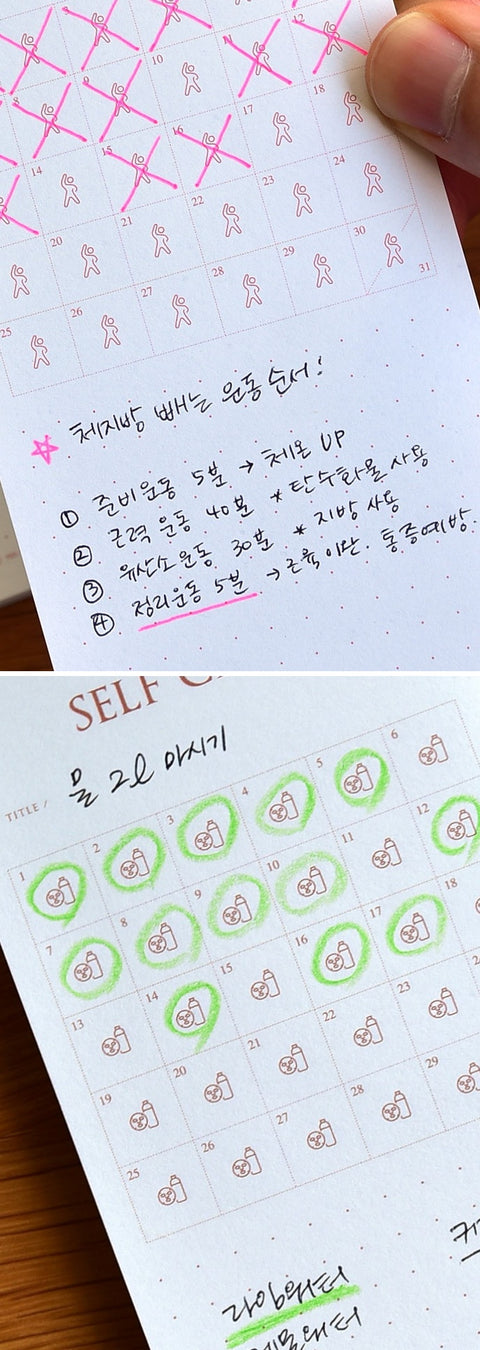 12
8 9 10 11
14 15 16 17 18
20 21 22 23 24
25 26 27 28 29 30 31
체지방 빼는 운동순서!
① 준비운동 5분 → 체온 UP
② 근력 운동 40분 * 탄수화물 사용
③ 유산소운동 30분 * 지방 사용
④ 정리운동 5분 → 근육이완. 통증예방.
SELF C
TITLE /
물 2l 마시기
1 2 3 4 5 6
7 8 9 10 11 12
13 14 15 16 17 18
19 20 21 22 23
25 26 27 28 29
라임워터